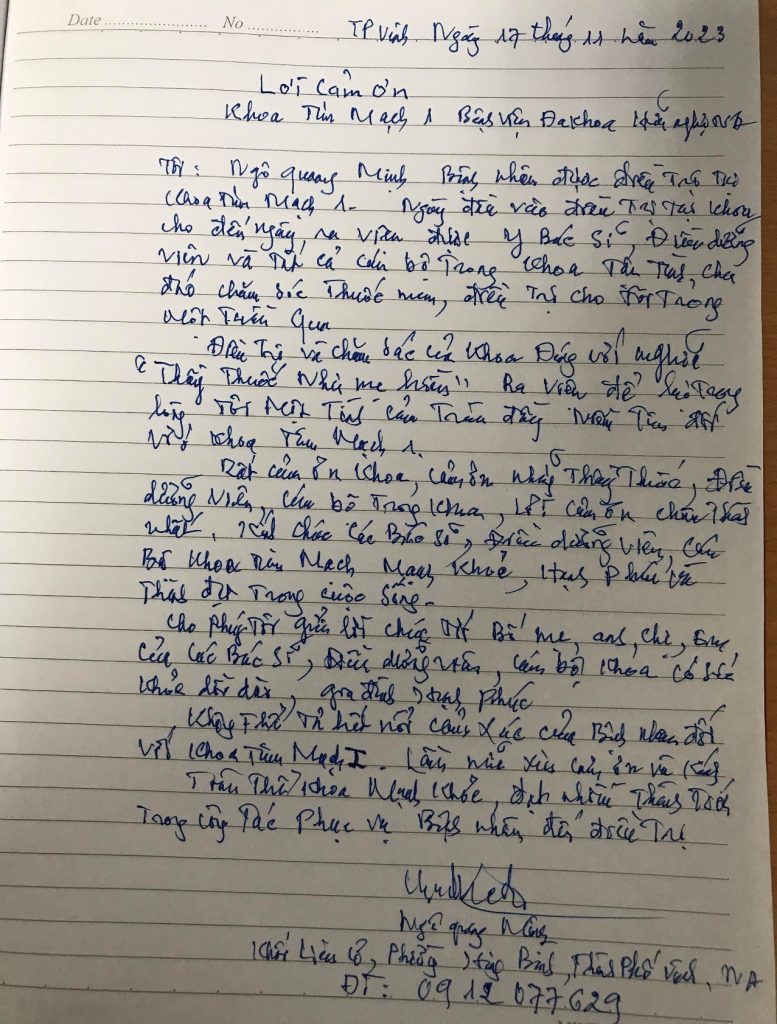 Date ........................ No ................
TP Vinh Ngày 17 tháng 11 năm 2023
Lời cảm ơn
Khoa Tim Mạch 1 Bệnh viện Đa khoa Hữu nghị NA
Tôi: Ngô quang Minh Bệnh nhân được điều Trị Tại
Khoa Tim Mạch 1. Ngày đầu vào điều Trị Tại Khoa
cho đến ngày ra viện được y Bác Sĩ, Điều dưỡng
viên và Tất cả cán bộ Trong Khoa Tận Tình, chu
đáo chăm sóc Thuốc men, điều Trị cho Tôi Trong
một Tuần Qua
Điều Trị và chăm sóc của Khoa Đúng với nghĩa
"Thầy Thuốc Như mẹ hiền" Ra viện để lại Trong
lòng Tôi Một Tình cảm Tràn đầy niềm Tin đối
với Khoa Tim Mạch 1.
Rất cảm ơn Khoa, cảm ơn những Thầy Thuốc, Điều
dưỡng viên, cán bộ Trong Khoa, Lời cảm ơn chân Thành
nhất. Kính chúc các Bác Sĩ, Điều dưỡng viên, cán
Bộ Khoa Tim Mạch Mạnh Khoẻ, Hạnh Phúc và
Thành đạt Trong cuộc Sống.
Cho phép Tôi gửi lời chúc Tới Bố mẹ, anh, chị, Em,
của các Bác Sĩ, Điều dưỡng viên, cán bộ Khoa có sức
Khỏe dồi dào, gia đình Hạnh phúc
Không Thể Tả hết nỗi cảm xúc của Bệnh nhân đối
với Khoa Tim Mạch I. Lần nữa xin cảm ơn và Kính
Khoa Mạnh Khỏe, đạt nhiều Thành Tích
Trong công Tác Phục vụ Bệnh nhân đến điều Trị
Ngô quang Minh
Khối Phường Hưng Bình, Thành Phố Vinh, NA
ĐT: 0912 077629